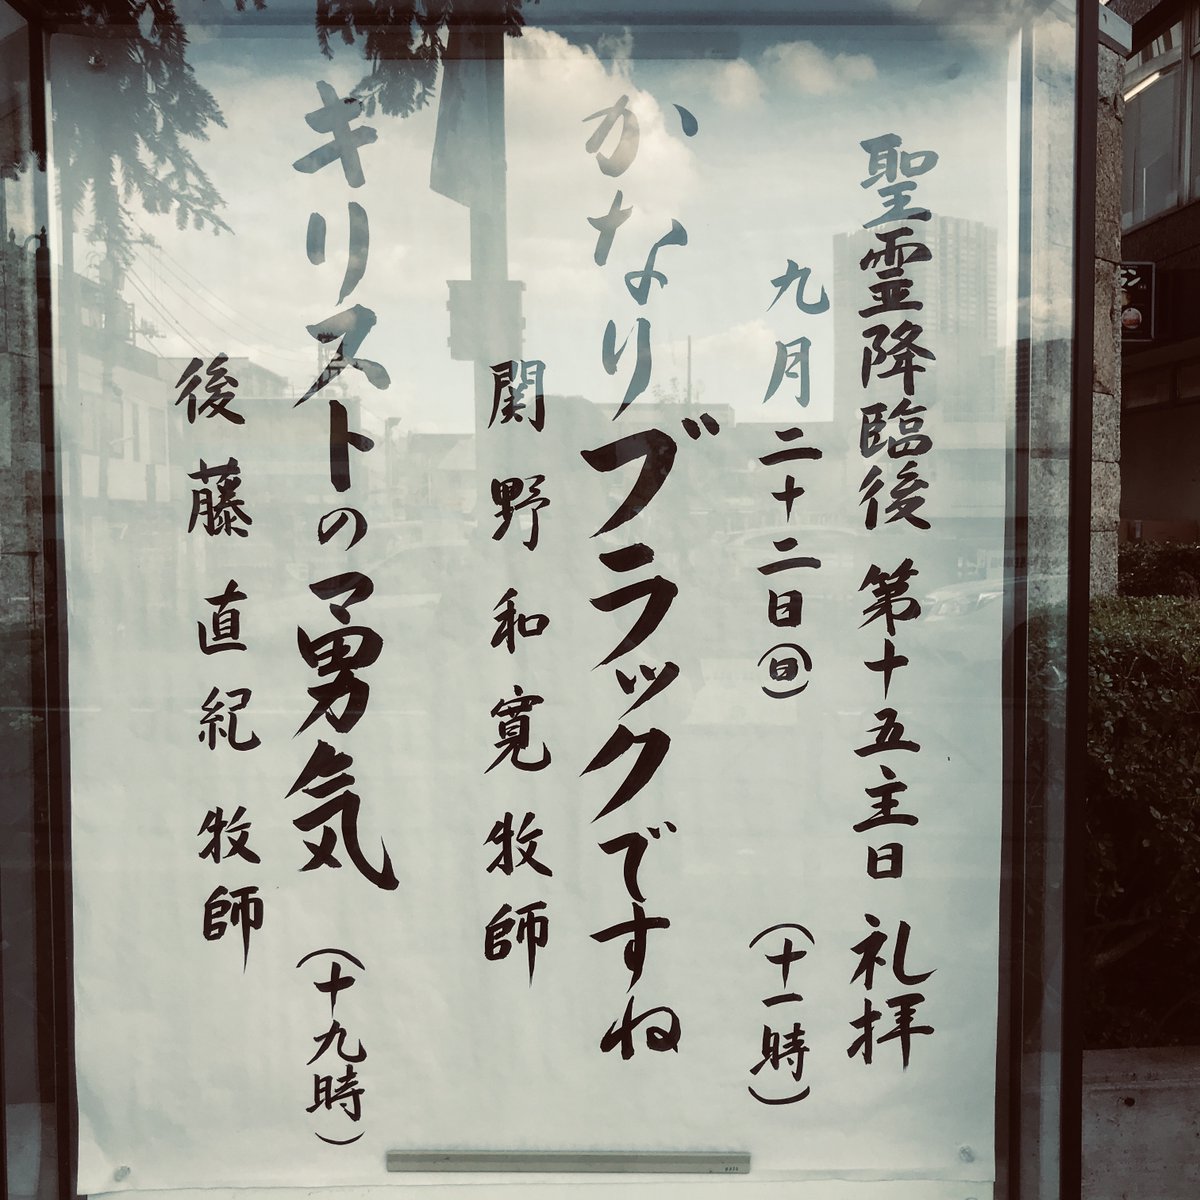 聖霊降臨後 第十五主日 礼拝
九月二十二日(日) (十一時)
かなりブラックですね
関野和寛牧師
キリストの勇気 (十九時)
後藤直紀牧師